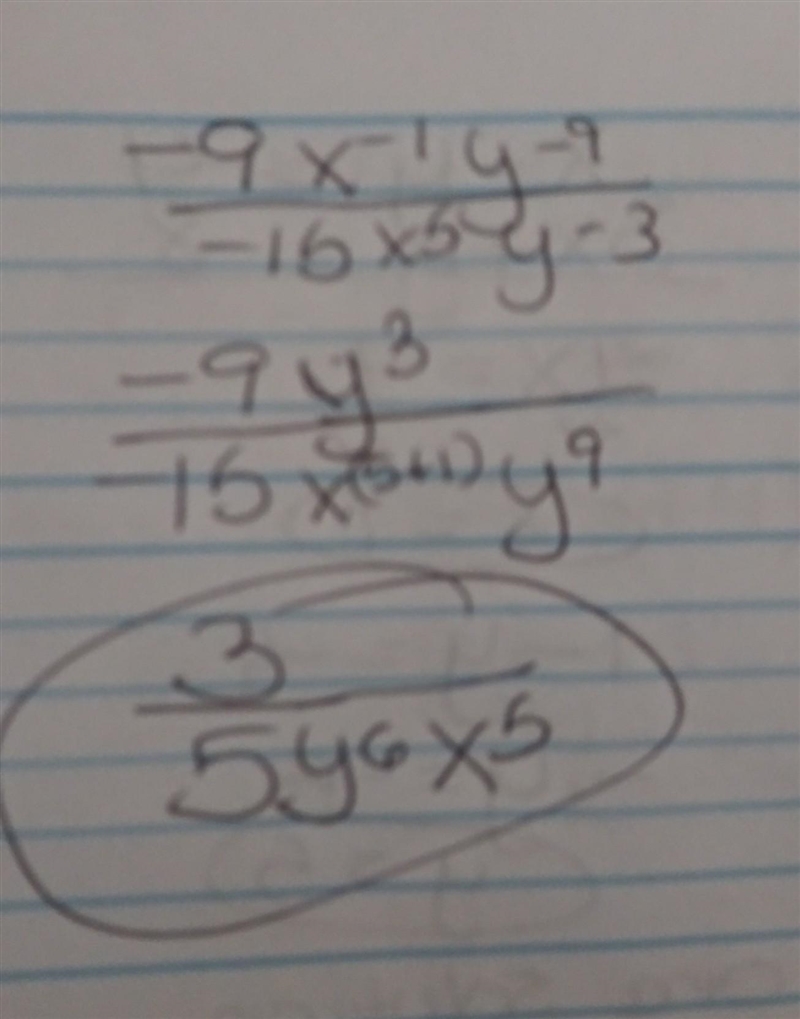 -9x⁻¹y⁻⁹
-15x⁵y⁻³
-9y³
-15x⁽⁵⁺¹⁾y⁹
3
5y⁶x⁵